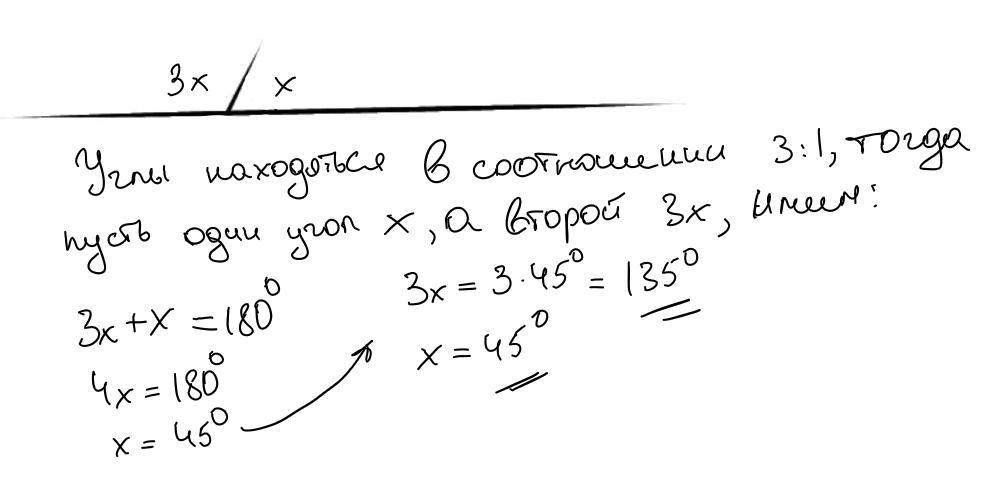 3x x
Углы находяться в соотношении 3:1, тогда
пусть один угол x, а второй 3x, имеем:
3x+x=180° 3x = 3·45° = 135°
4x=180° x = 45°
x = 45°